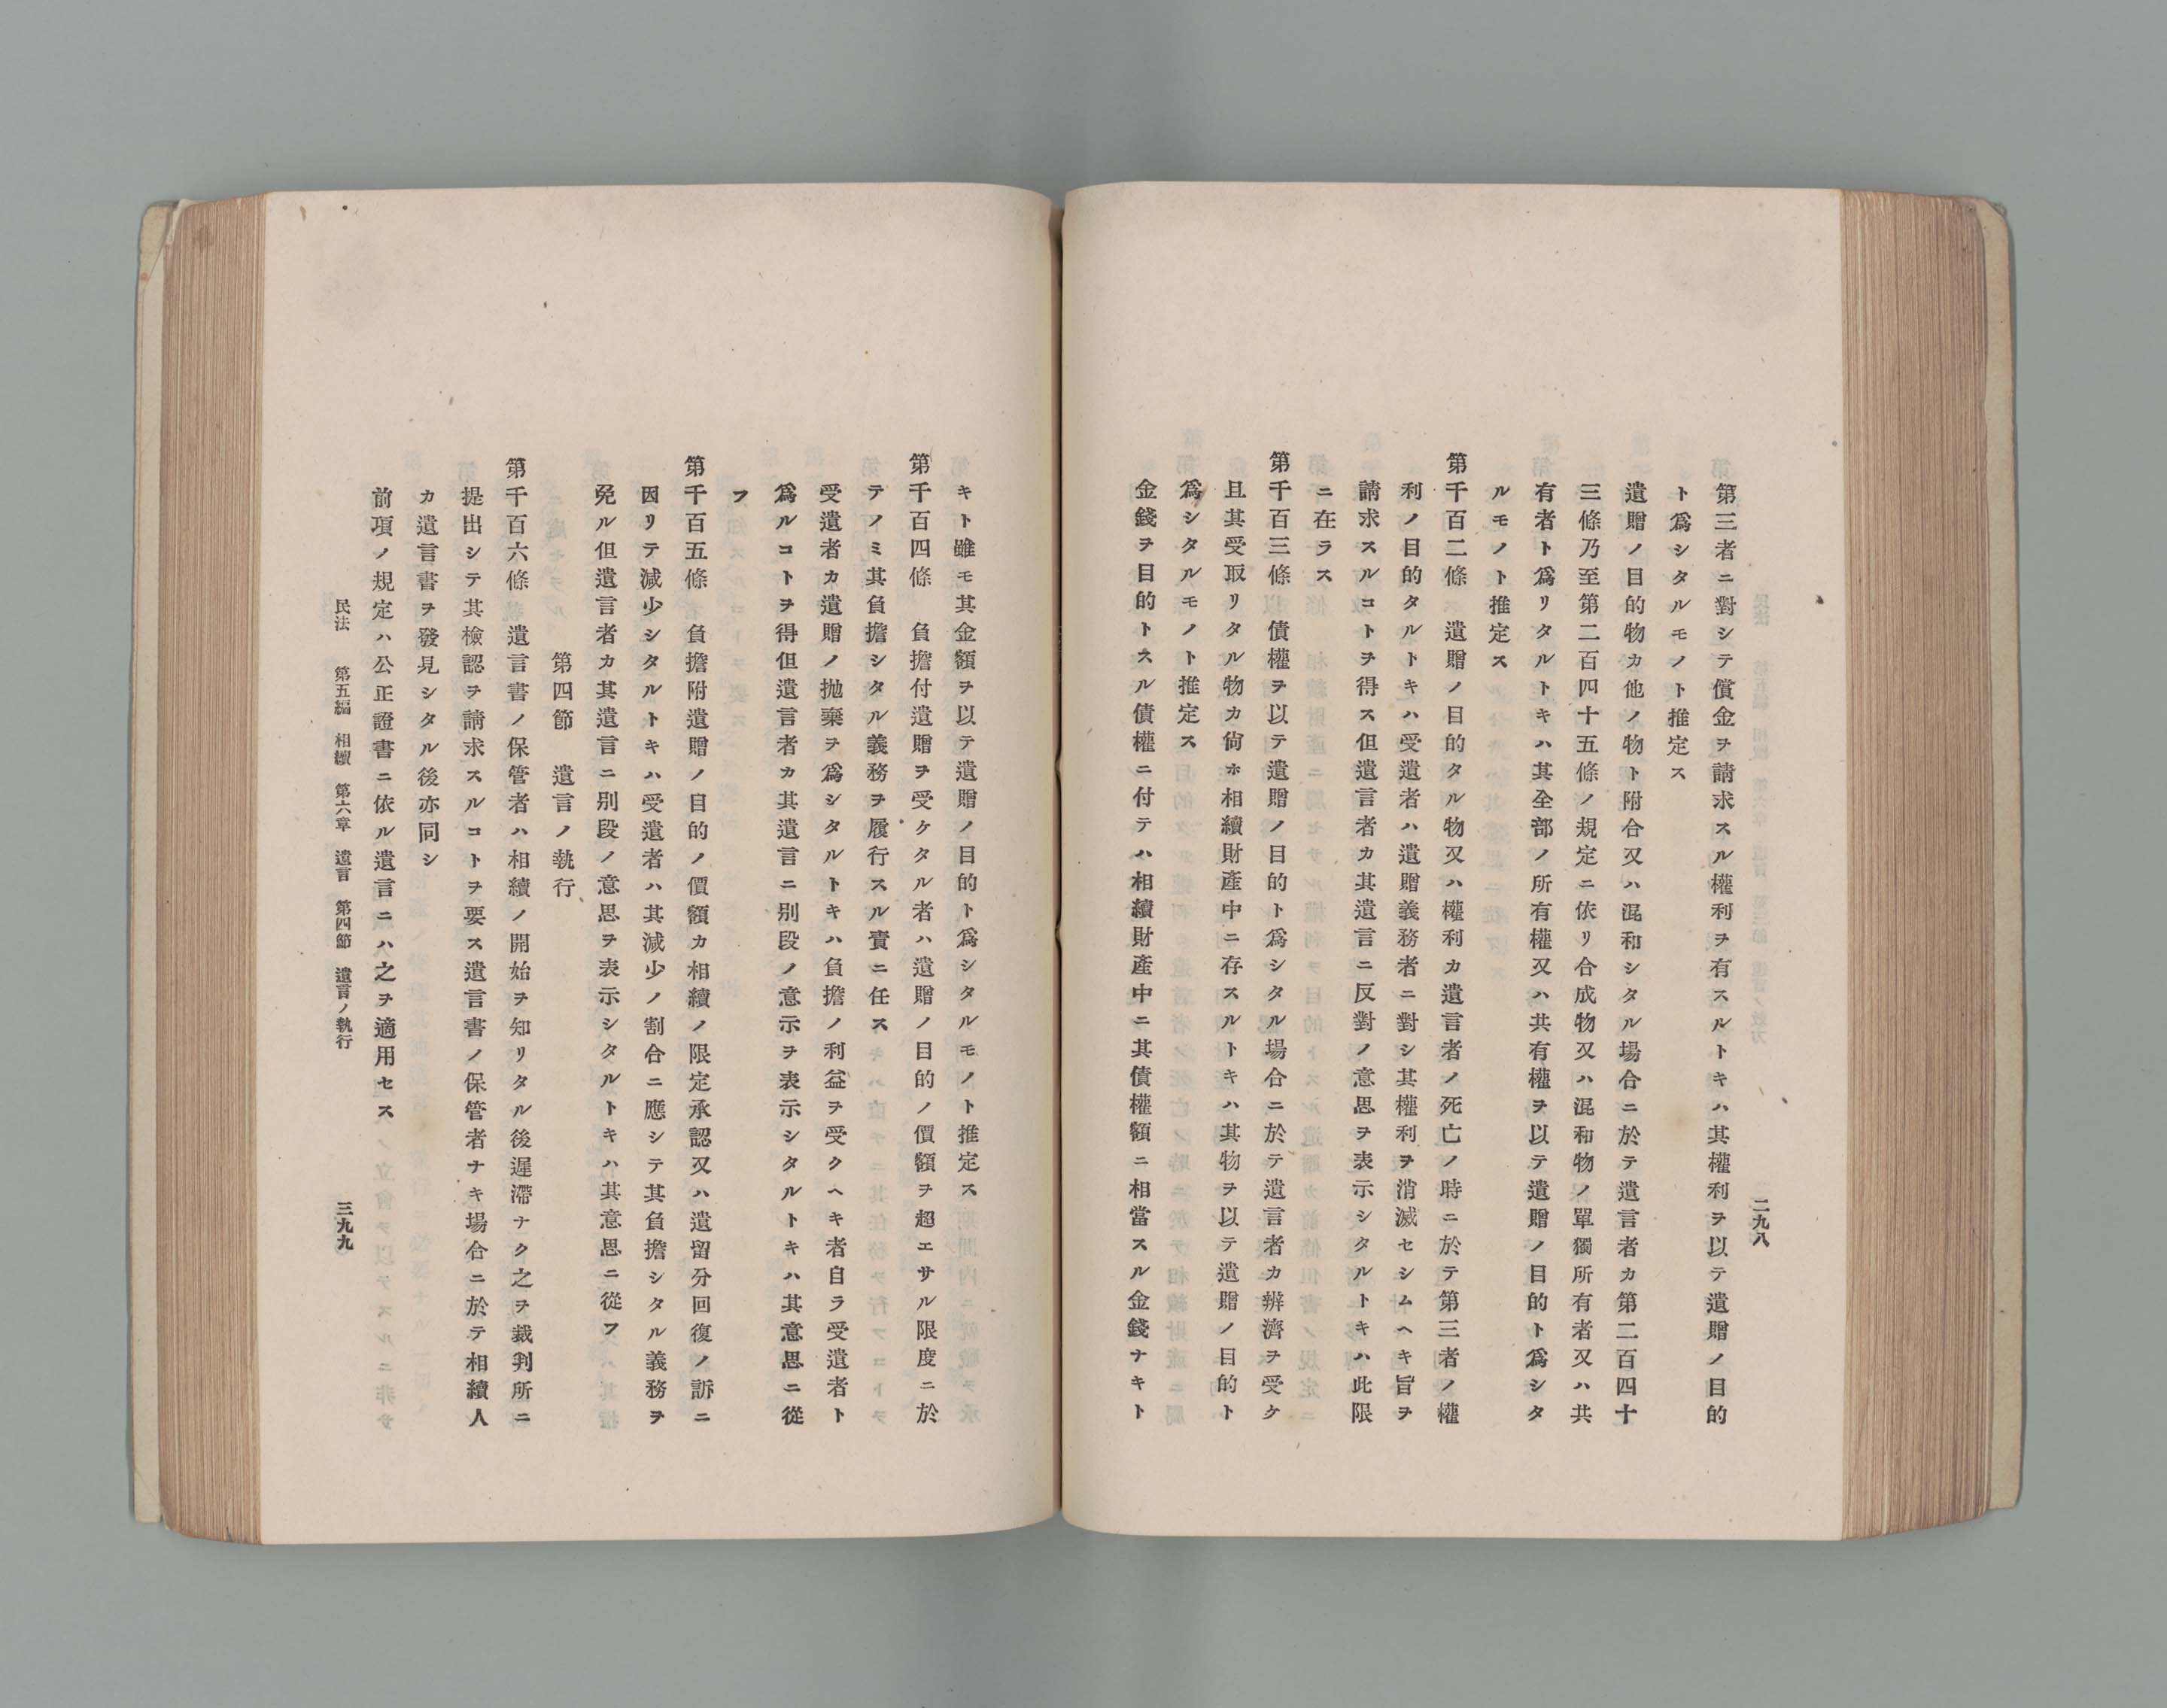 二九八
第三者ニ對シテ償金ヲ請求スル權利ヲ有スルトキハ其權利ヲ以テ遺贈ノ目的
ト爲シタルモノト推定ス
遺贈ノ目的物カ他ノ物ト附合又ハ混和シタル場合ニ於テ遺言者カ第二百四十
三條乃至第二百四十五條ノ規定ニ依リ合成物又ハ混和物ノ單獨所有者又ハ共
有者ト爲リタルトキハ其全部ノ所有權又ハ共有權ヲ以テ遺贈ノ目的ト爲シタ
ルモノト推定ス
第千百二條　遺贈ノ目的タル物又ハ權利カ遺言者ノ死亡ノ時ニ於テ第三者ノ權
利ノ目的タルトキハ受遺者ハ遺贈義務者ニ對シ其權利ヲ消滅セシムヘキ旨ヲ
請求スルコトヲ得ス但遺言者カ其遺言ニ反對ノ意思ヲ表示シタルトキハ此限
ニ在ラス
第千百三條　債權ヲ以テ遺贈ノ目的ト爲シタル場合ニ於テ遺言者カ辨濟ヲ受ケ
且其受取リタル物カ尙ホ相續財產中ニ存スルトキハ其物ヲ以テ遺贈ノ目的ト
爲シタルモノト推定ス
金錢ヲ目的トスル債權ニ付テハ相續財產中ニ其債權額ニ相當スル金錢ナキト
キト雖モ其金額ヲ以テ遺贈ノ目的ト爲シタルモノト推定ス
第千百四條　負擔付遺贈ヲ受ケタル者ハ遺贈ノ目的ノ價額ヲ超エサル限度ニ於
テノミ其負擔シタル義務ヲ履行スル責ニ任ス
受遺者カ遺贈ノ抛棄ヲ爲シタルトキハ負擔ノ利益ヲ受クヘキ者自ラ受遺者ト
爲ルコトヲ得但遺言者カ其遺言ニ別段ノ意示ヲ表示シタルトキハ其意思ニ從
フ
第千百五條　負擔附遺贈ノ目的ノ價額カ相續ノ限定承認又ハ遺留分回復ノ訴ニ
因リテ減少シタルトキハ受遺者ハ其減少ノ割合ニ應シテ其負擔シタル義務ヲ
免ル但遺言者カ其遺言ニ別段ノ意思ヲ表示シタルトキハ其意思ニ從フ
第四節　遺言ノ執行
第千百六條　遺言書ノ保管者ハ相續ノ開始ヲ知リタル後遲滯ナク之ヲ裁判所ニ
提出シテ其檢認ヲ請求スルコトヲ要ス遺言書ノ保管者ナキ場合ニ於テ相續人
カ遺言書ヲ發見シタル後亦同シ
前項ノ規定ハ公正證書ニ依ル遺言ニハ之ヲ適用セス
民法　第五編　相續　第六章　遺言　第四節　遺言ノ執行　三九九